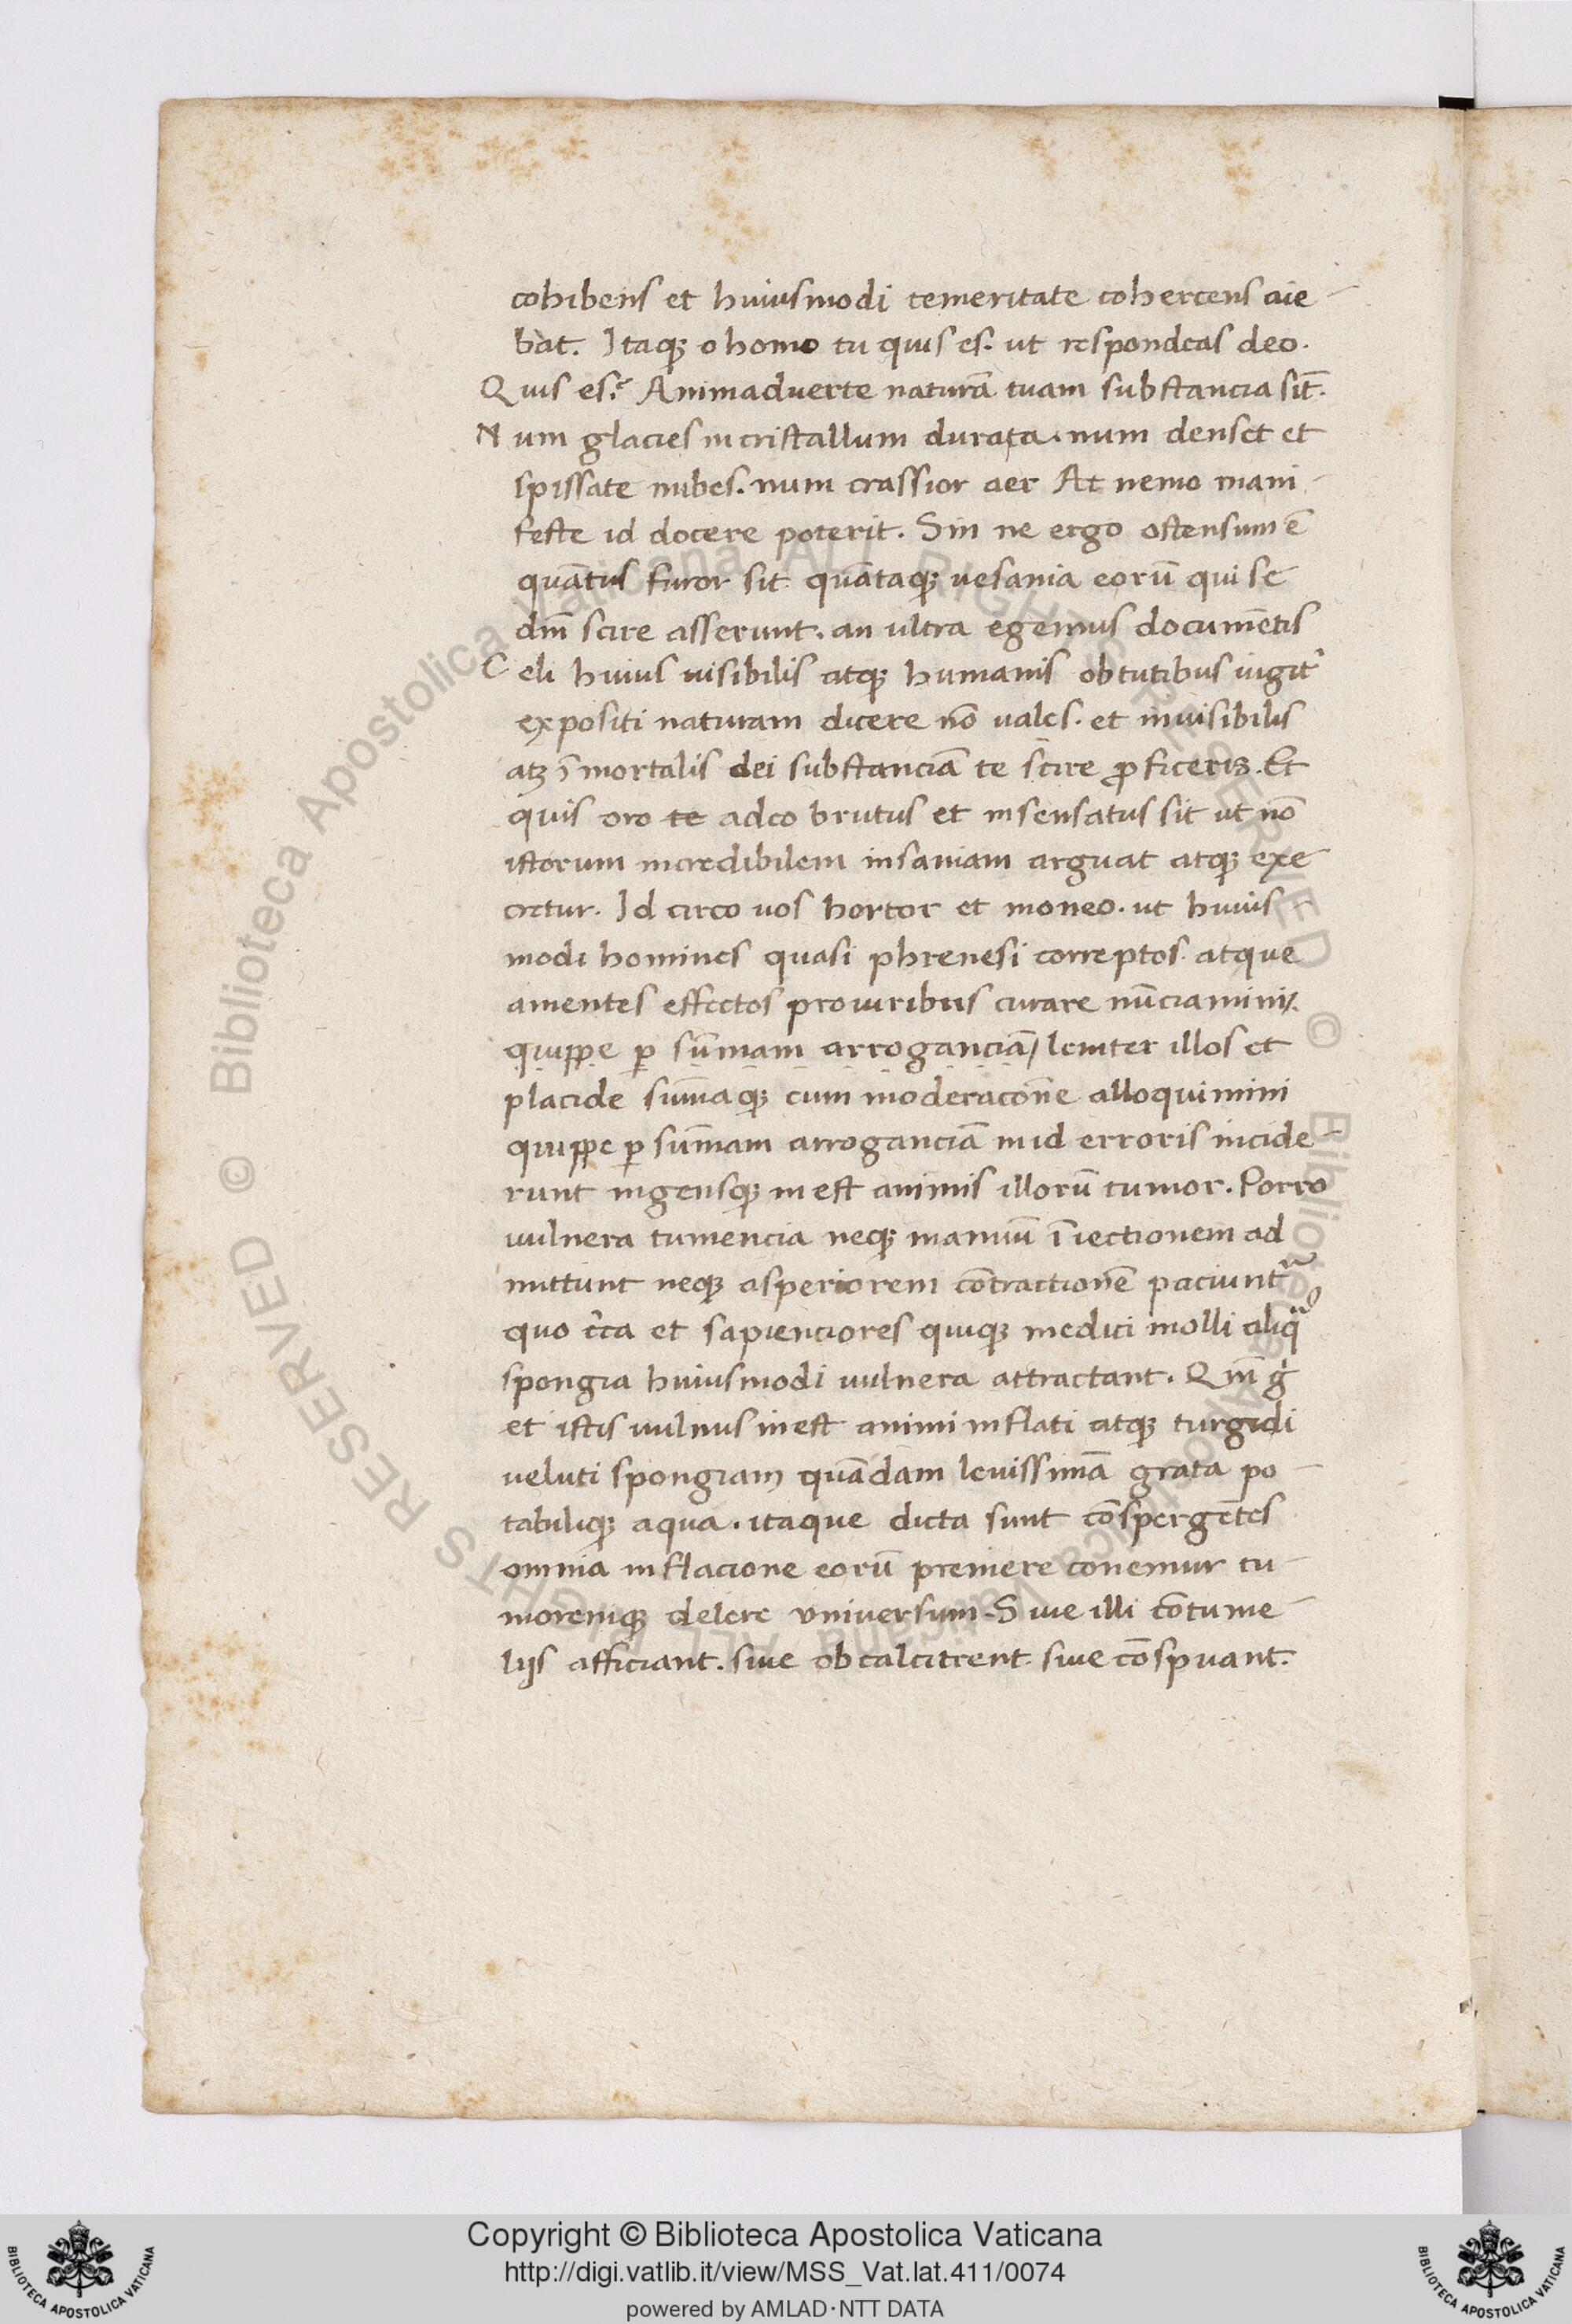 cohibens et huiusmodi temeritate cohercens aie
bat. Itaqꝫ o homo tu quis es. ut respondeas deo.
Quis es? Animaduerte naturā tuam substancia sit̄.
Num glacies in cristallum durata. num denset et
spissate nubes. num crassior aer At nemo mani
feste id docere poterit. Sin ne ergo ostensum ē
quātus furor sit quātaqꝫ uesania eorū qui se
dm̄ scire asserunt. an ultra egemus documētis
Celi huius uisibilis atqꝫ humanis obtutibus iugit᷑
expositi naturam dicere nō uales. et inuisibilis
atꝫ īmortalis dei substanciā te scire ꝓficeris. Et
quis oro te adeo brutus et insensatus sit ut nō
istorum incredibilem insaniam arguat atqꝫ exe
cretur. Id circo uos hortor et moneo. ut huius
modi homines quasi phrenesi correptos atque
amentes effectos pro uiribus curare nūciamini.
quippe ꝑ sūmam arroganciā leniter illos et
placide sūmaqꝫ cum moderacōne alloquimini
quippe ꝑ sūmam arroganciā in id erroris incide
runt ingensqꝫ in est animis illorū tumor. Porro
uulnera tumencia neqꝫ manuū īiectionem ad
mittunt neqꝫ asperiorem cōtractionē paciunt᷑
quo cc̄a et sapienciores quiqꝫ medici molli aliqͣ
spongia huiusmodi uulnera attractant. Qm̄ gͥ
et istis uulnus inest animi inflati atqꝫ turgidi
ueluti spongiam quādam leuissimā grata po
tabiliqꝫ aqua. itaque dicta sunt cōspergētes
omnia inflacione eorū premere conemur tu
moremqꝫ delere vniuersum. Siue illi cōtume
lijs afficiant. siue obcalcitrent siue cōspuant.
Copyright © Biblioteca Apostolica Vaticana
http://digi.vatlib.it/view/MSS_Vat.lat.411/0074
powered by AMLAD·NTT DATA